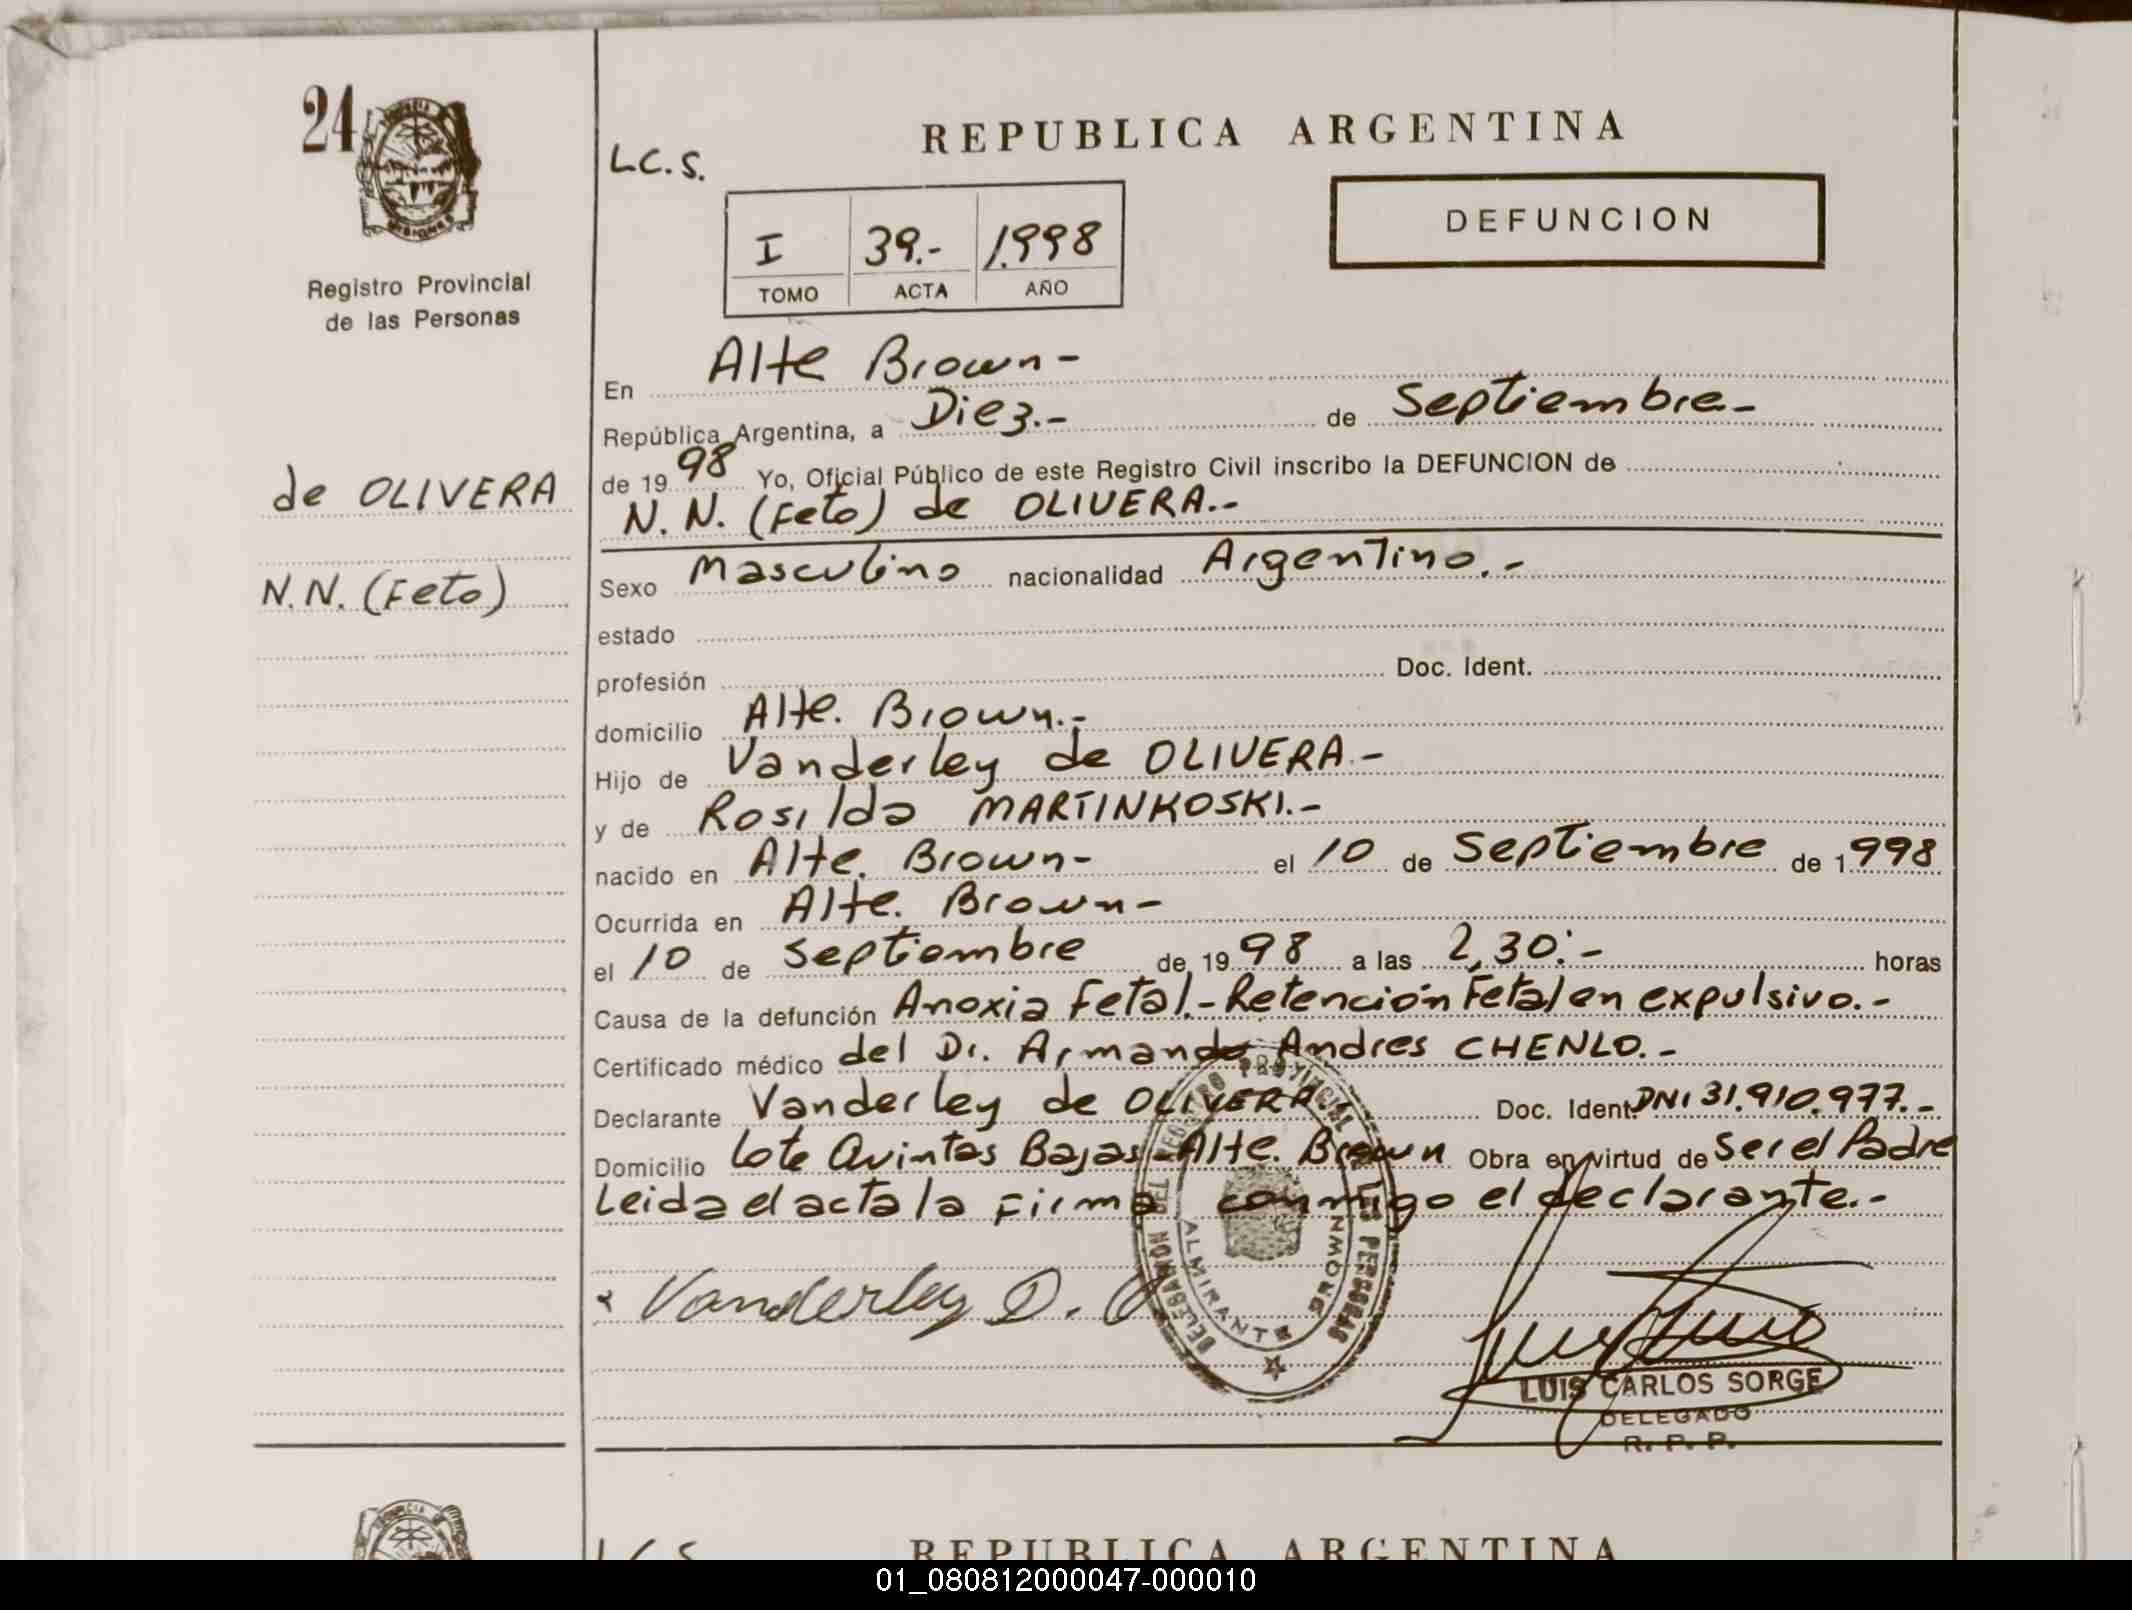 24
Registro Provincial
de las Personas
L.C.S.
REPUBLICA ARGENTINA
DEFUNCION
I 39.- 1.998
TOMO ACTA AÑO
de OLIVERA
N.N. (Feto)
En Alte Brown-
República Argentina, a Diez.- de Septiembre.-
de 1998 Yo, Oficial Público de este Registro Civil inscribo la DEFUNCION de
N.N. (Feto) de OLIVERA.-
Sexo Masculino nacionalidad Argentino.-
estado
profesión Doc. Ident.
domicilio Alte. Brown.-
Hijo de Vanderley de OLIVERA.-
y de Rosilda MARTINKOSKI.-
nacido en Alte. Brown- el 10 de Septiembre de 1998
Ocurrida en Alte. Brown-
el 10 de Septiembre de 1998 a las 2,30:- horas
Causa de la defunción Anoxia Fetal.- Retención Fetal en expulsivo.-
Certificado médico del Dr. Armando Andres CHENLO.-
Declarante Vanderley de OLIVERA.- Doc. Ident. DNI 31.910.977.-
Domicilio Lote Quintas Bajas-Alte. Brown Obra en virtud de Ser el Padre
Leida el acta la Firma conmigo el declarante.-
Vanderley D. O
REGISTRO PROVINCIAL DE LAS PERSONAS
DELEGACION
ALMIRANTE BROWN
LUIS CARLOS SORGE
DELEGADO
R. P. P.
L.C.S
REPUBLICA ARGENTINA
01_080812000047-000010